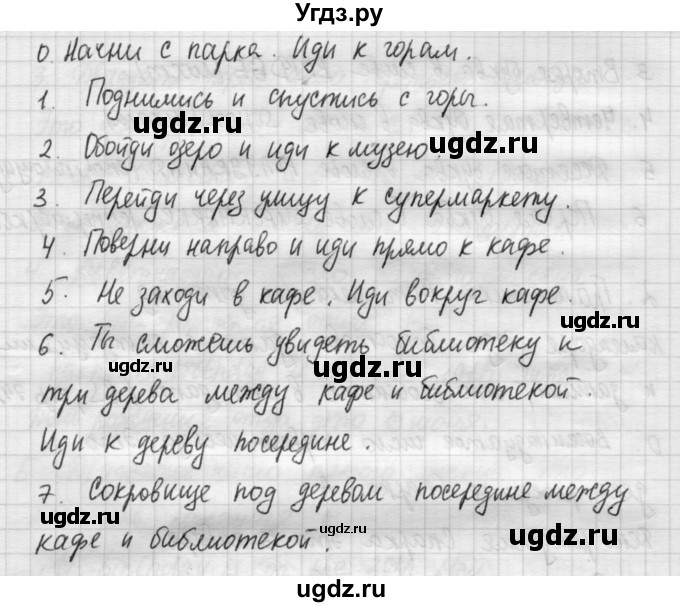 Угдз.ру
0. Начни с парка. Иди к горам.
1. Поднимись и спустись с горы.
2. Обойди озеро и иди к музею.
3. Перейди через улицу к супермаркету.
4. Поверни направо и иди прямо к кафе.
5. Не заходи в кафе. Иди вокруг кафе.
6. Ты сможешь увидеть библиотеку и
три дерева между кафе и библиотекой.
Иди к дереву посередине.
7. Сокровище под деревом посередине между
кафе и библиотекой.
ugdz.ru
ugdz.ru
ugdz.ru
ugdz.ru
ugdz.ru
ugdz.ru
ugdz.ru
ugdz.ru
ugdz.ru
ugdz.ru
ugdz.ru
ugdz.ru
ugdz.ru